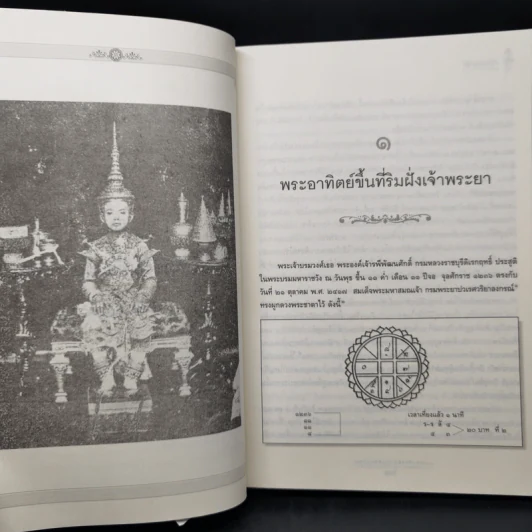 ๑
พระอาทิตย์ขึ้นที่ริมฝั่งเจ้าพระยา
พระเจ้าบรมวงศ์เธอ พระองค์เจ้ารพีพัฒนศักดิ์ กรมหลวงราชบุรีดิเรกฤทธิ์ ประสูติ
ในพระบรมมหาราชวัง ณ วันพุธ ขึ้น ๑๑ ค่ำ เดือน ๑๑ ปีจอ จุลศักราช ๑๒๓๖ ตรงกับ
วันที่ ๒๑ ตุลาคม พ.ศ. ๒๔๑๗ สมเด็จพระมหาสมณเจ้า กรมพระยาปวเรศวริยาลงกรณ์
ทรงผูกดวงพระชาตาไว้ ดังนี้
เวลาเที่ยงแล้ว ๑ นาที
๑๒๓๖
๑๑
๑๑
๔
๒๐ บาท ที่ ๒